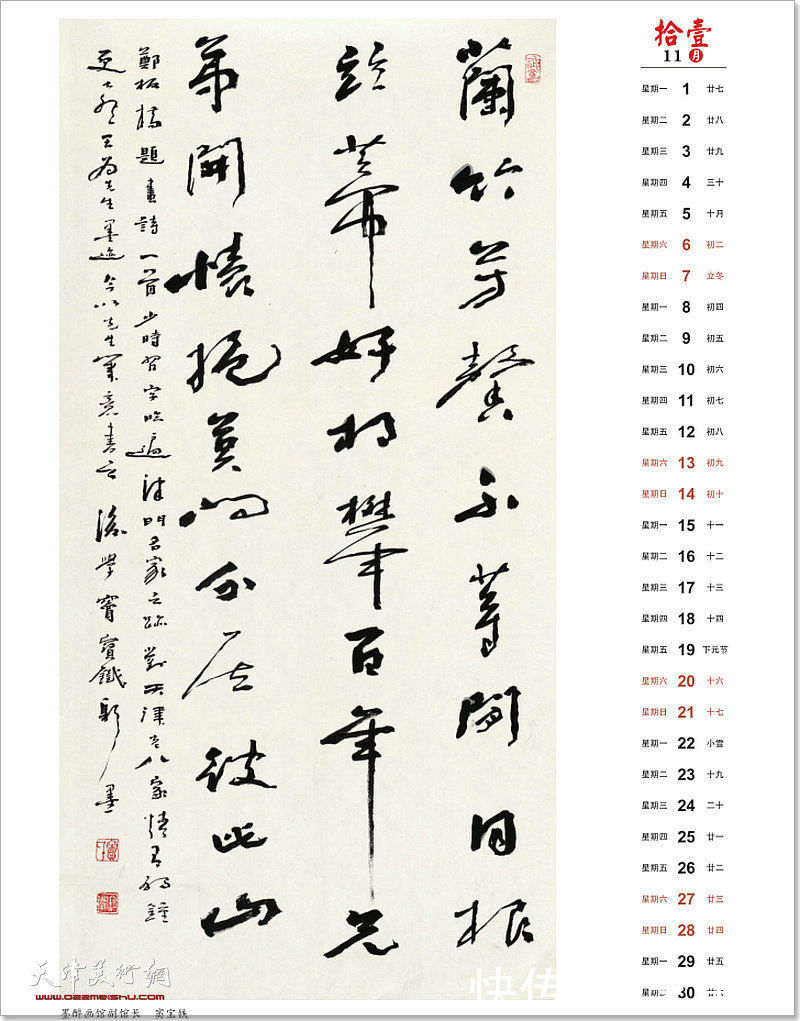 蘭竹芳馨不等閒同根
並蒂好相攀百年兄
弟開懷抱莫謂分居彼此山
鄭板橋題畫詩一首少時習字臨遍津門名家之跡對天津老八家情有獨鐘
更先生墨迹今以先生筆意書之後學竇寶鐵墨
拾壹
11月
星期一 1 廿七
星期二 2 廿八
星期三 3 廿九
星期四 4 三十
星期五 5 十月
星期六 6 初二
星期日 7 立冬
星期一 8 初四
星期二 9 初五
星期三 10 初六
星期四 11 初七
星期五 12 初八
星期六 13 初九
星期日 14 初十
星期一 15 十一
星期二 16 十二
星期三 17 十三
星期四 18 十四
星期五 19 下元节
星期六 20 十六
星期日 21 十七
星期一 22 小雪
星期二 23 十九
星期三 24 二十
星期四 25 廿一
星期五 26 廿二
星期六 27 廿三
星期日 28 廿四
星期一 29 廿五
星期二 30 廿六
天津美術網
www.022meishu.com
墨醉画馆副馆长 窦宝铁
快传